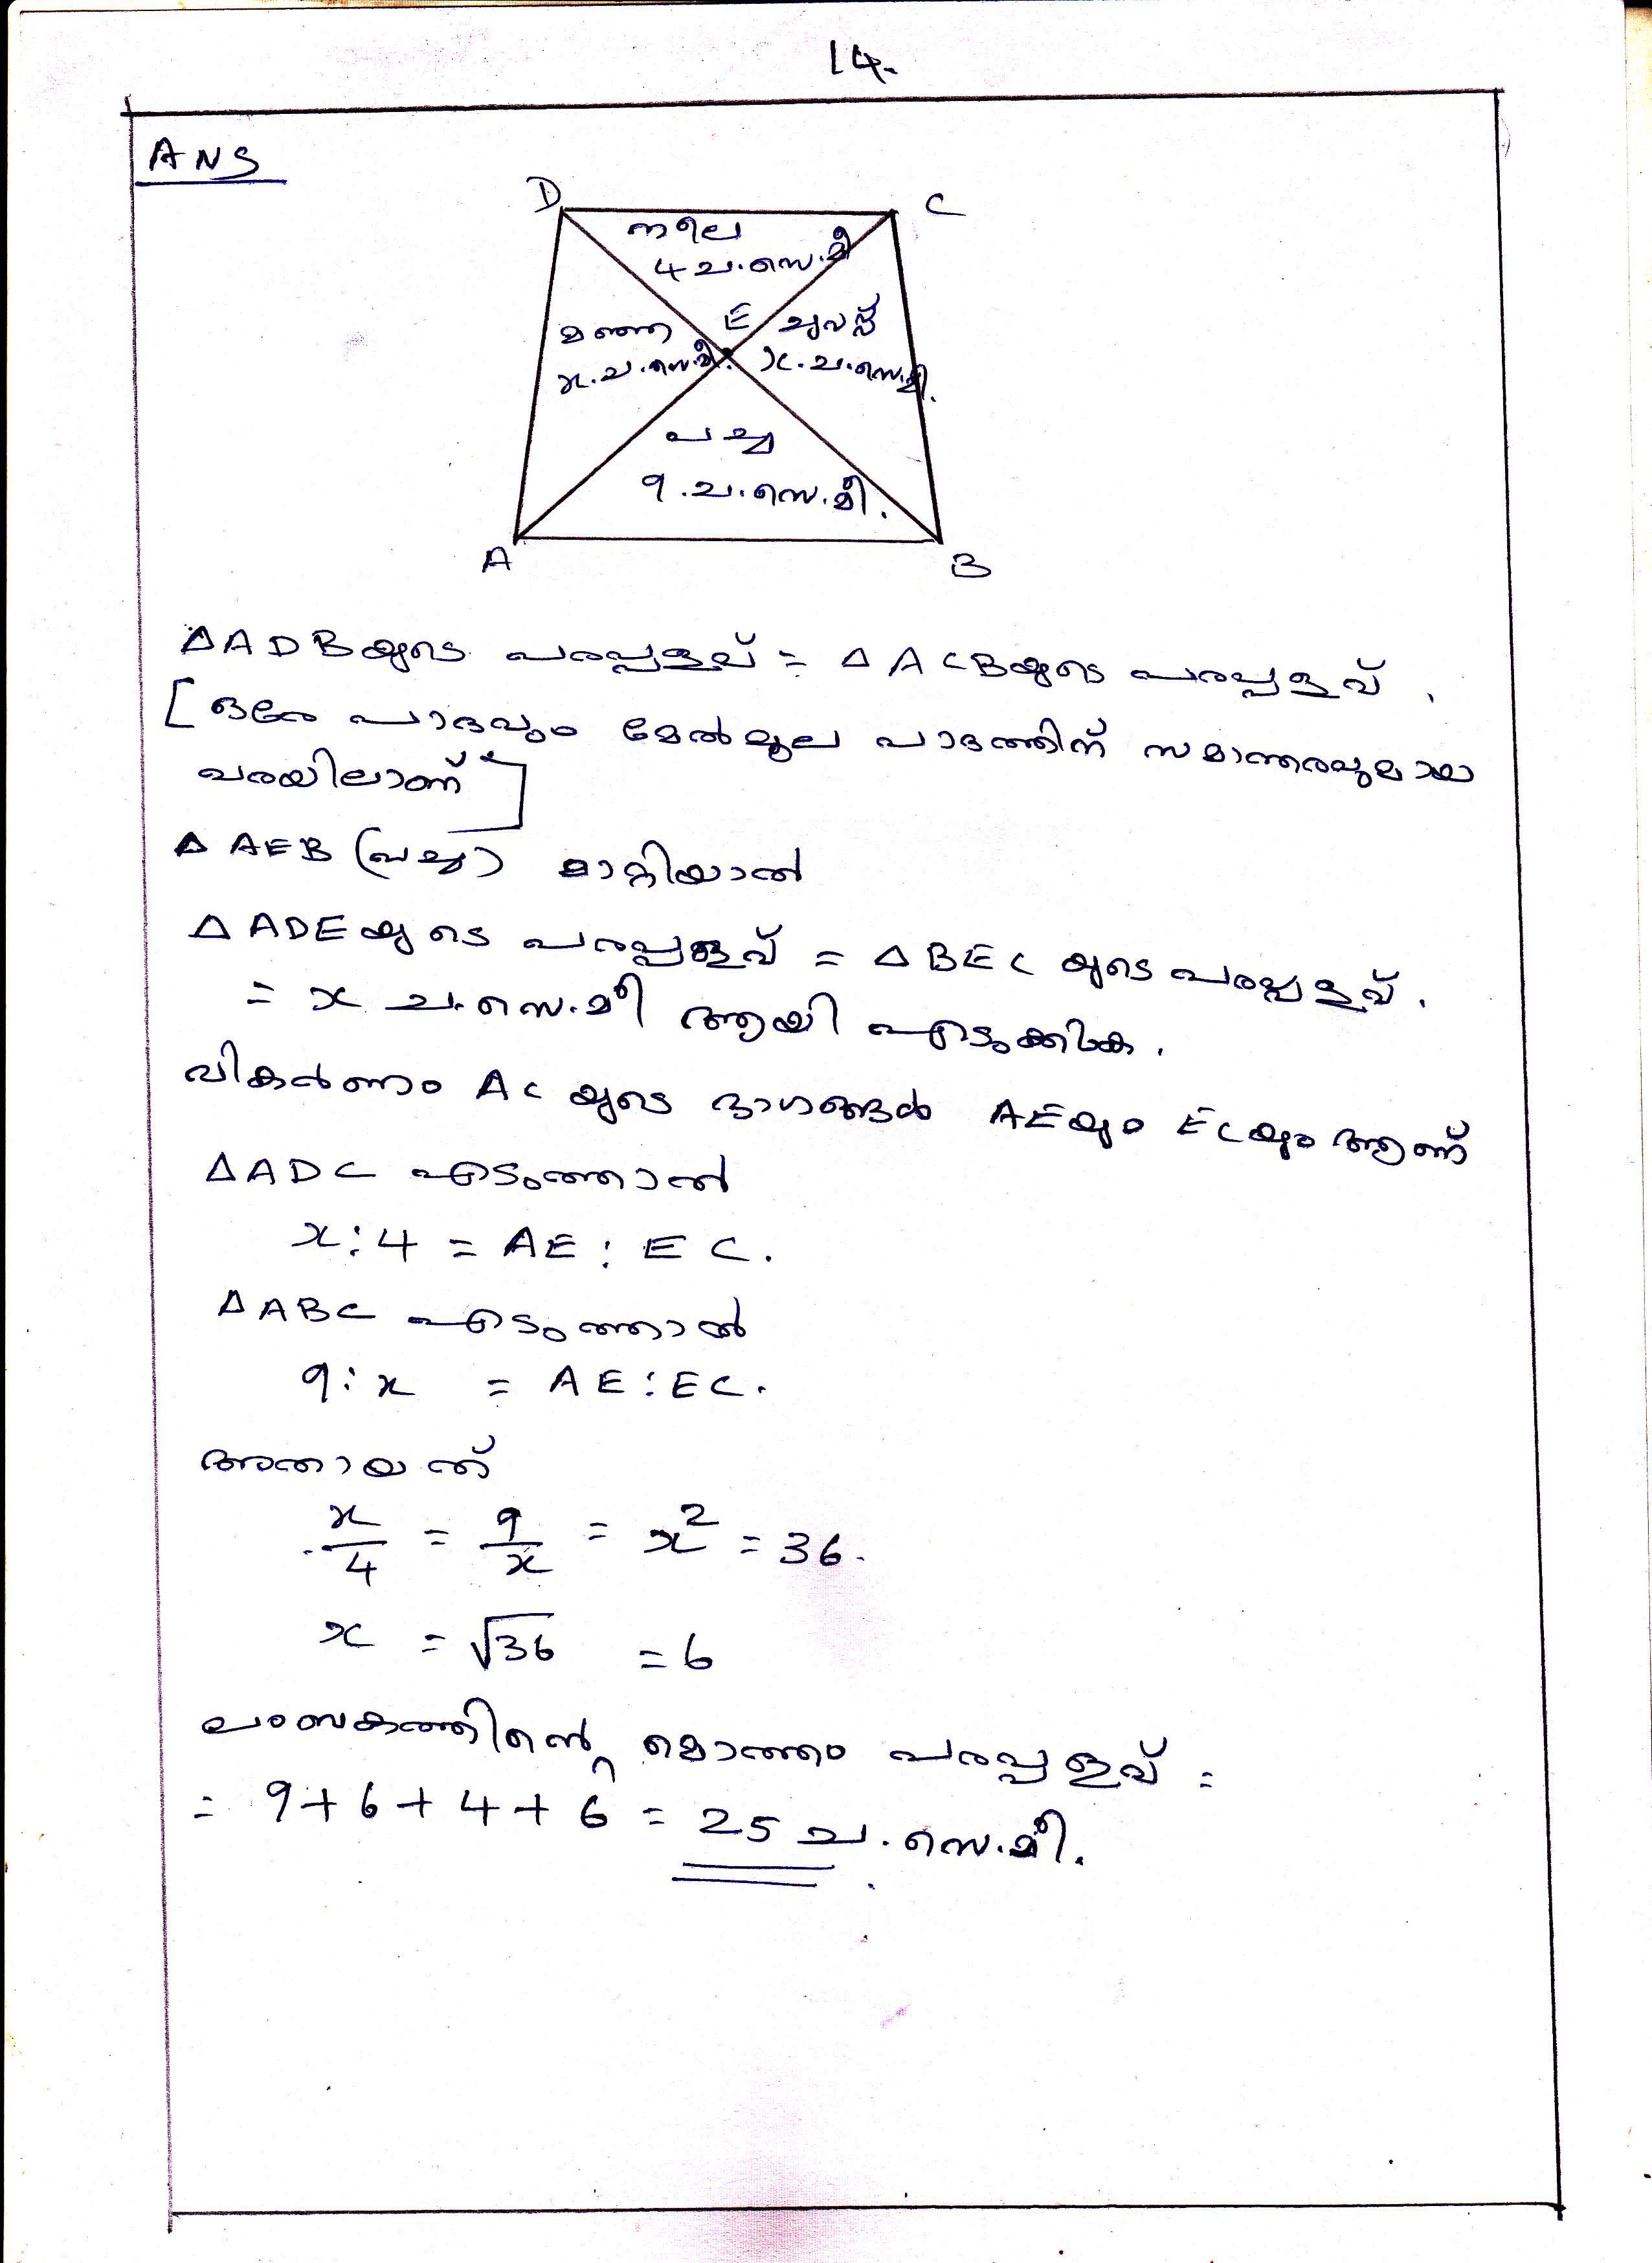 14.
ANS
D
C
നീല
4 ച.സെ.മീ
E
മഞ്ഞ
ചുവപ്പ്
x.ച.സെ.മീ.
x.ച.സെ.മീ.
പച്ച
9.ച.സെ.മീ.
A
B
△ADBയുടെ പരപ്പളവ് = △ACBയുടെ പരപ്പളവ്.
[ഒരേ പാദവും മേൽമൂല പാദത്തിന് സമാന്തരവുമായ
വരയിലാണ്]
△AEB (പച്ച) മാറ്റിയാൽ
△ADEയുടെ പരപ്പളവ് = △BECയുടെ പരപ്പളവ്.
= x ച.സെ.മീ ആയി എടുക്കുക.
വികർണം ACയുടെ ഭാഗങ്ങൾ AEയും ECയും ആണ്
△ADC എടുത്താൽ
x:4 = AE:EC.
△ABC എടുത്താൽ
9:x = AE:EC.
അതായത്
x/4 = 9/x = x² = 36.
x = √36 = 6
ലംബകത്തിന്റെ മൊത്തം പരപ്പളവ് =
= 9+6+4+6 = 25 ച.സെ.മീ.